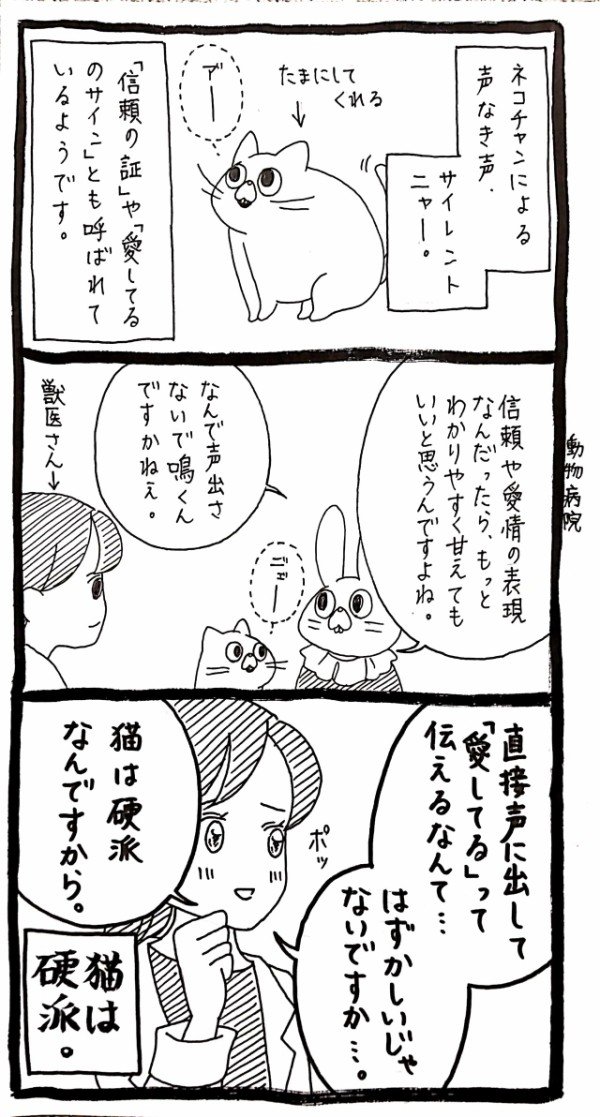 ネコチャンによる
声なき声、
サイレント
ニャー。
たまにして
くれる
ア゛ー
「信頼の証」や「愛してる
のサイン」とも呼ばれて
いるようです。
動物病院
信頼や愛情の表現
なんだったら、もっと
わかりやすく甘えても
いいと思うんですよね。
なんで声出さ
ないで鳴くん
ですかねぇ。
ニャー
獣医さん
直接声に出して
「愛してる」って
伝えるなんて…
はずかしいじゃ
ないですか…。
ポッ
猫は硬派
なんですから。
猫は
硬派。